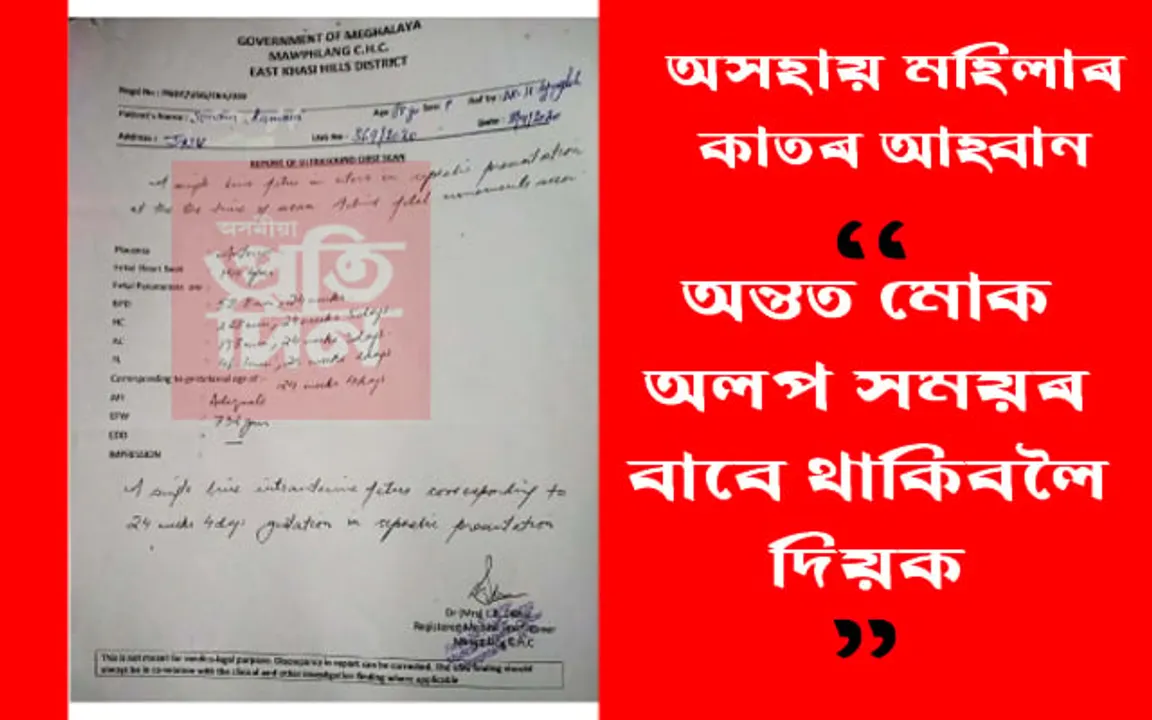 GOVERNMENT OF MEGHALAYA
MAWPHLANG C.H.C.
EAST KHASI HILLS DISTRICT
Regd No :
Patient's Name :
Age Sex : F Ref by :
Address : USG No : 369/2020 Date :
REPORT OF ULTRASOUND OBST SCAN
A single live fetus in utero in cephalic presentation
at the time of scan. Active fetal movements seen
অসমীয়া
প্ৰতি
দিন
Placenta
Fetal Heart Beat
Fetal Parameters are :-
BPD
HC
AC
FL
Corresponding to gestational age of - 24 weeks 4 days
AFI : Adequate
EFW :
EDD :
IMPRESSION
A single live intrauterine fetus corresponding to
24 weeks 4 days gestation in cephalic presentation
Dr (Mrs)
Registered Medical
C.H.C
This is not meant for medico-legal purpose. Discrepancy in report can be corrected. The USG finding should
always be in co-relation with the clinical and other investigation finding where applicable
অসহায় মহিলাৰ
কাতৰ আহবান
“
অন্তত মোক
অলপ সময়ৰ
বাবে থাকিবলৈ
দিয়ক
”